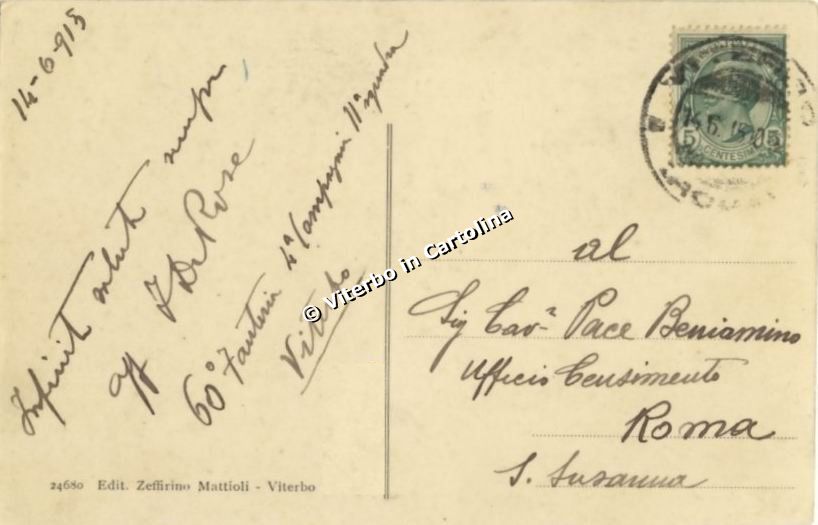 14-6-915
Infiniti saluti sempre
aff J De Rose
60° Fanteria 4ª Compagnia 11ª squadra
Viterbo
al
Sig Cavʳ Pace Beniamino
Ufficio Censimento
Roma
S. Susanna
24680 Edit. Zeffirino Mattioli - Viterbo
© Viterbo in Cartolina
VITERBO
14.6.15.
5 5
CENTESIMI